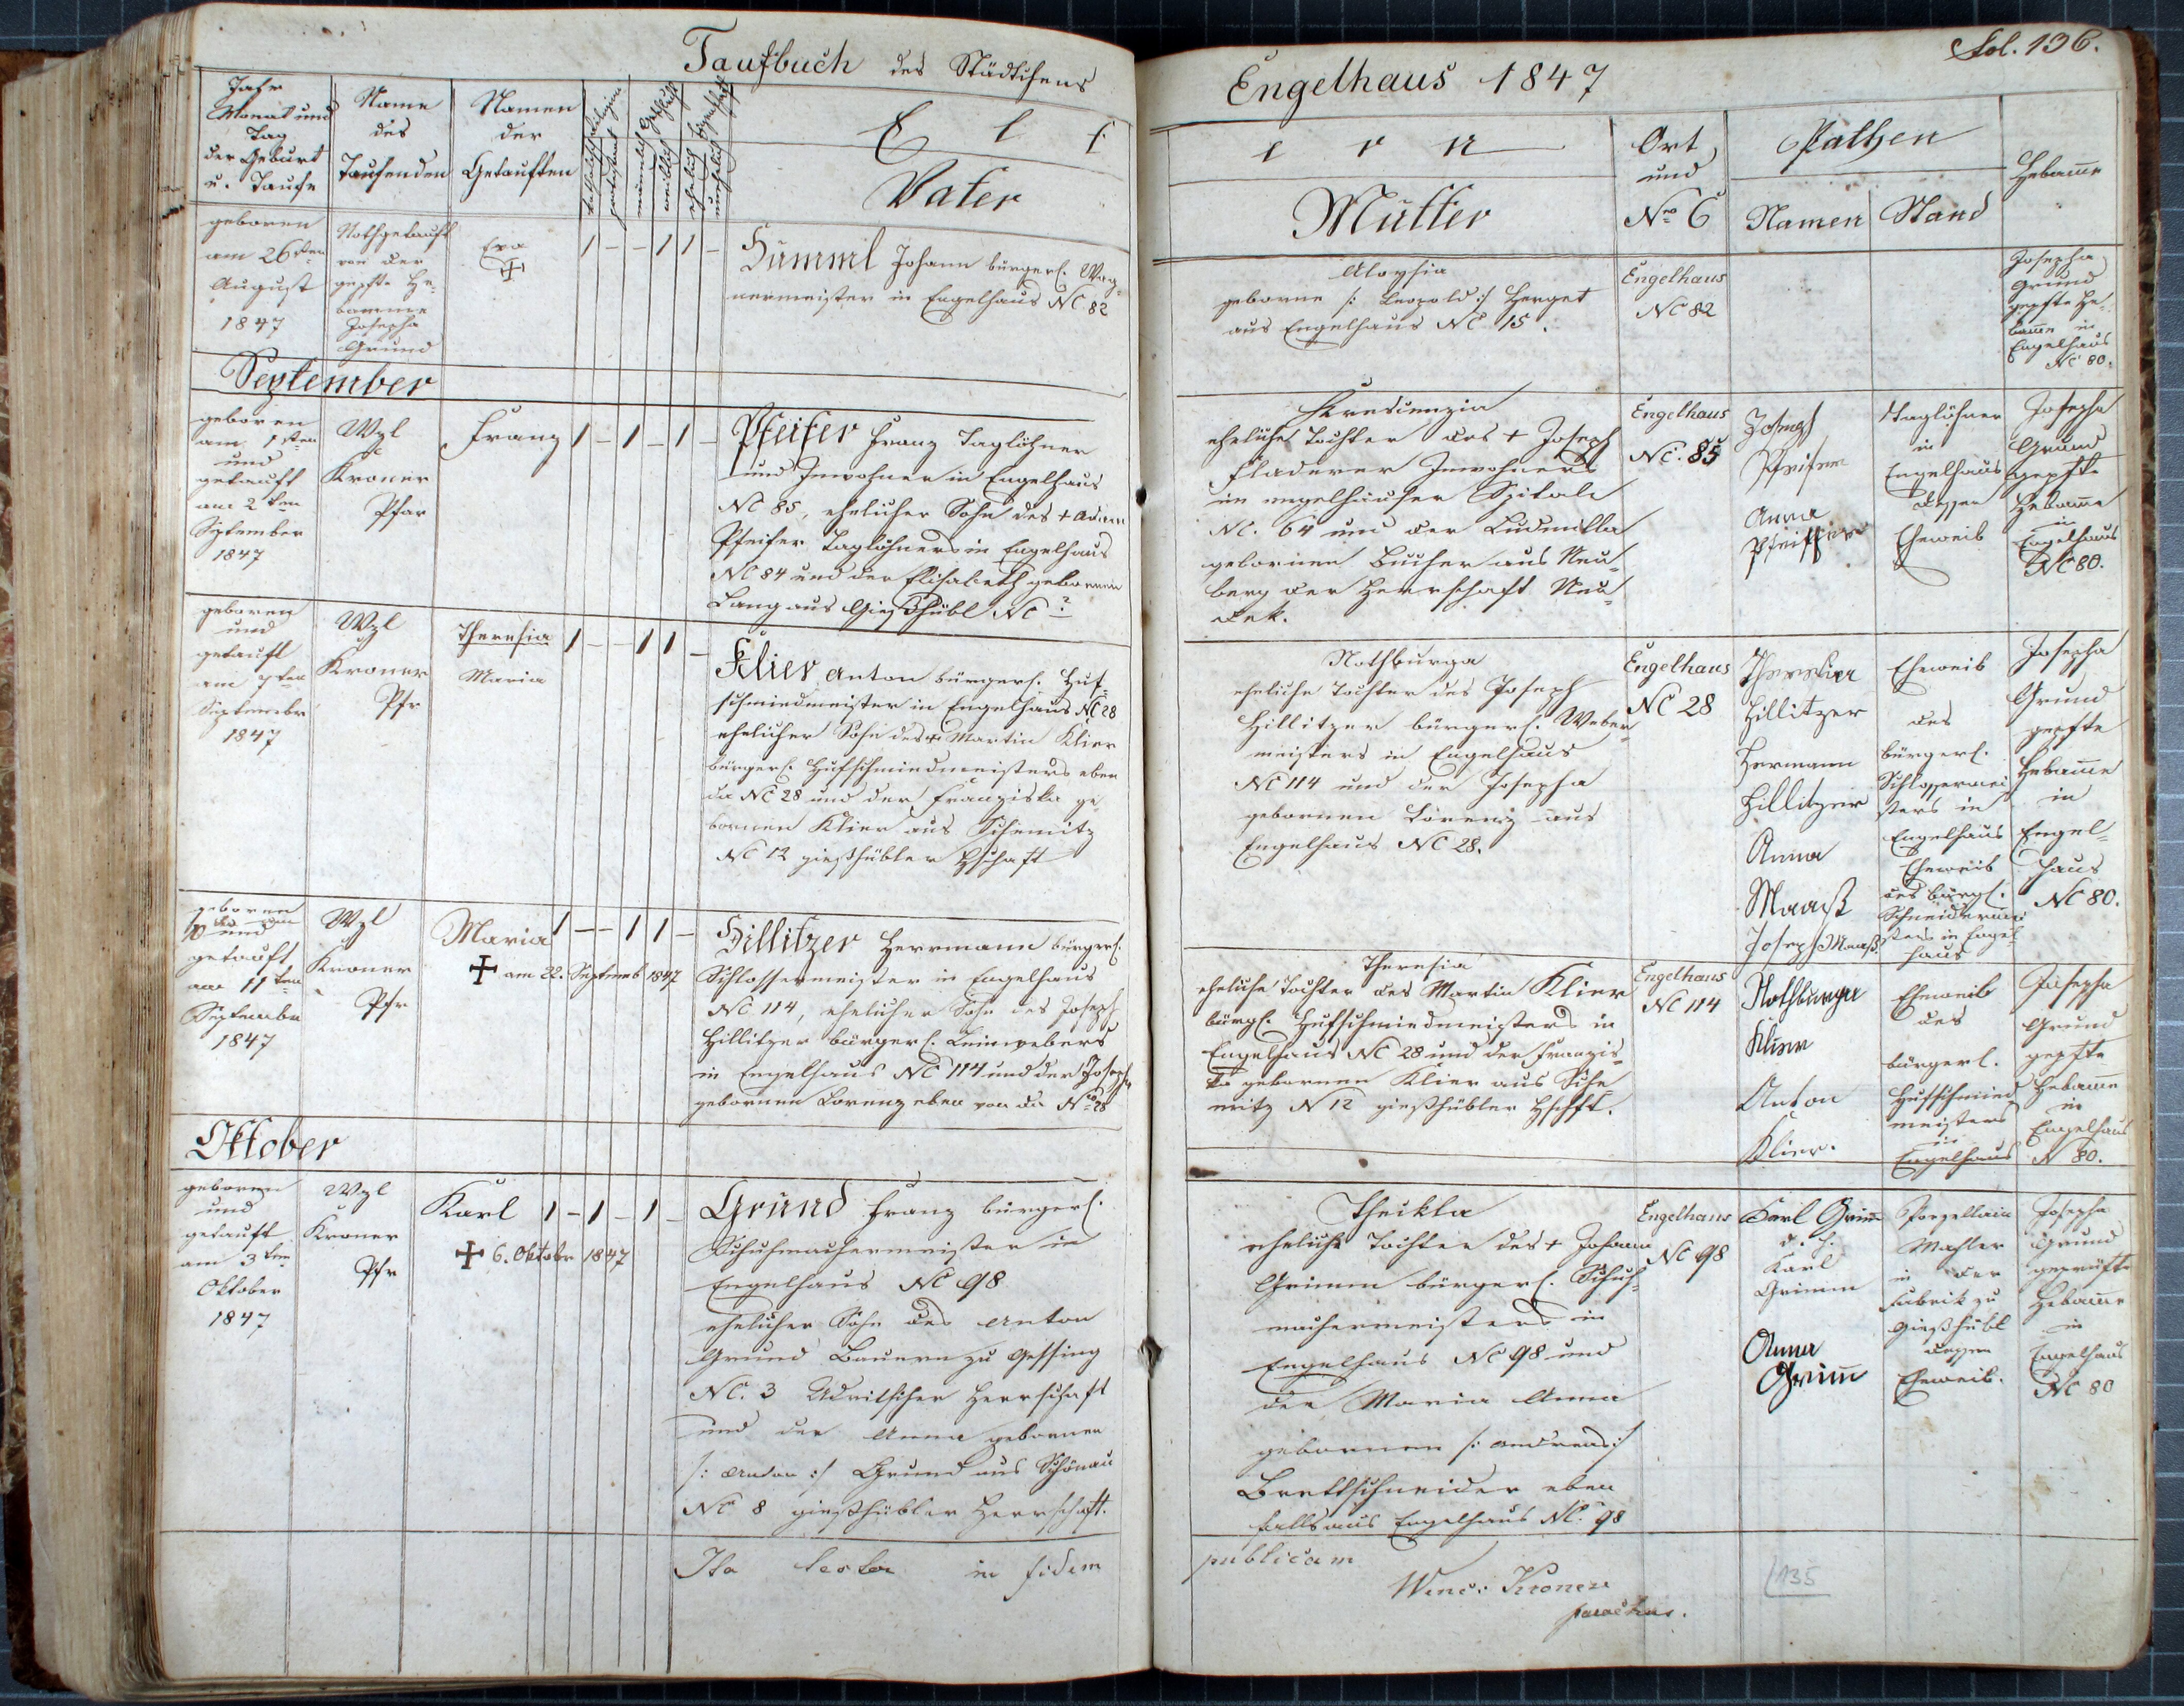 Taufbuch des Städtchens
Engelhaus 1847
Fol. 136.
Jahr
Monat und
Tag
der Geburt
u. Taufe
Name
des
Taufenden
Namen
der
Getauften
Religion
katholisch
protestant
Geschlecht
männlich
weiblich
ehelich
unehelich
E l t
e r n
Vater
Mutter
Ort
und
Nro C
Pathen
Namen
Stand
Hebamme
geboren
am 26sten
August
1847
Nothgetauft
von der
gepfte He-
bamme
Josepha
Grund
1 - - 1 1 -
Hümml Johann bürgerl. Wag-
nermeister in Engelhaus NC 82
Aloysia
geborne /: Leopold :/ Herget
aus Engelhaus NC 15.
Engelhaus
NC 82
Josepha
Grund
gepfte He-
bamme in
Engelhaus
NC 80.
September
geboren
am 1sten
und
getauft
am 2ten
September
1847
Wzl
Kroner
Pfar
Franz
1 - 1 - 1 -
Pfeifer Franz Taglöhner
und Inwohner in Engelhaus
NC 85, ehelicher Sohn des + Adam
Pfeifer Taglöhners in Engelhaus
NC 84 und der Elisabeth gebornen
Lang aus Gießhübl NC ?
Kreszenzia
eheliche Tochter des + Joseph
Fladerer Inwohners
im engelhauser Spitale
NC. 64 und der Ludmilla
gebornen Bucher aus Neu-
berg der Herrschaft Neu-
dek.
Engelhaus
NC. 85
Joseph
Pfeifer
Anna
Pfeiffer
Taglöhner
in
Engelhaus
dessen
Eheweib
Josepha
Grund
gepfte
Hebamme
in
Engelhaus
NC 80.
geboren
und
getauft
am 7ten
September
1847
Wzl
Kroner
Pfr
Theresia
Maria
1 - - 1 1 -
Klier Anton bürgerl. Huf-
schmiedmeister in Engelhaus NC 28
ehelicher Sohn des + Martin Klier
bürgerl. Hufschmiedmeisters eben
da NC 28 und der Franziska ge-
bornen Klier aus Schemitz
NC 12 gießhübler Hschaft
Nothburga
eheliche Tochter des Joseph
Hillitzer bürgerl. Weber-
meisters in Engelhaus
NC 114 und der Josepha
gebornen Lorenz aus
Engelhaus NC 28.
Engelhaus
NC 28
Theresia
Hillitzer
Hermann
Hillitzer
Anna
Maaß
Joseph Maaß
Eheweib
des
bürgerl.
Schlossermei
sters in
Engelhaus
Eheweib
des bürgl.
Schneidermei
sters in Engel
haus
Josepha
Grund
gepfte
Hebamme
in
Engel-
haus
NC 80.
geboren
10ten und
getauft
am 11ten
September
1847
Wzl
Kroner
Pfr
Maria
+ am 22. Septemb 1847
1 - - 1 1 -
Hillitzer Herrmann bürgerl.
Schlossermeister in Engelhaus
NC 114, ehelicher Sohn des Joseph
Hillitzer bürgerl. Leinwebers
in Engelhaus NC 114 und der Josepha
gebornen Lorenz eben von da Nro 28
Theresia
eheliche Tochter des Martin Klier
bürgl. Hufschmiedmeisters in
Engelhaus NC 28 und der Franzis-
ka gebornen Klier aus Sche
mitz N 12 gießhübler Hschft.
Engelhaus
NC 114
Nothburga
Klier
Anton
Klier.
Eheweib
des
bürgerl.
Hufschmied
meisters
in
Engelhaus
Josepha
Grund
gepfte
Hebamme
in
Engelhaus
N 80.
Oktober
geboren
und
getauft
am 3ten
Oktober
1847
Wzl
Kroner
Pfr
Karl
+ 6. Oktobr 1847
1 - 1 - 1 -
Grund Franz bürgerl.
Schuhmachermeister in
Engelhaus NC 98
ehelicher Sohn des Anton
Grund Bauern zu Gessing
NC. 3 Udritscher Herrschaft
und der Anna gebornen
/: Anton :/ Grund aus Schönau
NC 8 gießhübler Herrschaft.
Theikla
eheliche Tochter des + Johann
Grimm bürgerl. Schuh-
machermeisters in
Engelhaus NC 98 und
der Maria Anna
gebornen /: Andreas :/
Brettschneider eben
falls aus Engelhaus NC. 98
Engelhaus
NC 98
Karl Grimm
d. h.
Karl
Grimm
Anna
Grimm
Porzellain
Mahler
in der
Fabrik zu
Gießhübl
dessen
Eheweib.
Josepha
Grund
geprüfte
Hebamme
in
Engelhaus
NC 80
Ita testor in fidem
publicam
Wenc: Kroner
parochus.
135